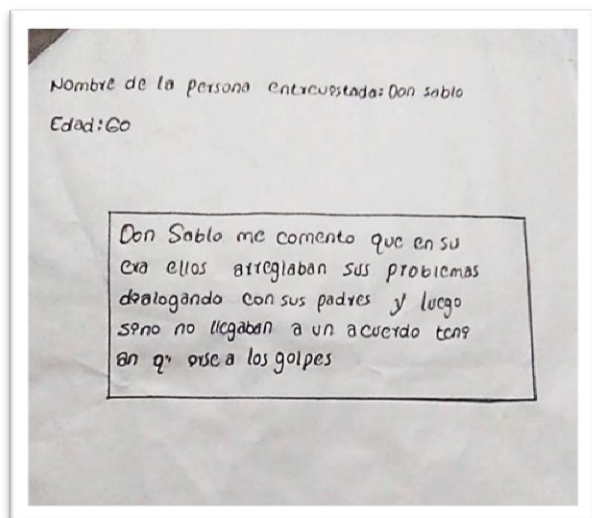 Nombre de la persona entrevistada: Don Sablo
Edad: 60
Don Sablo me comento que en su
era ellos arreglaban sus problemas
dialogando con sus padres y luego
sino no llegaban a un acuerdo teni
an q' irse a los golpes